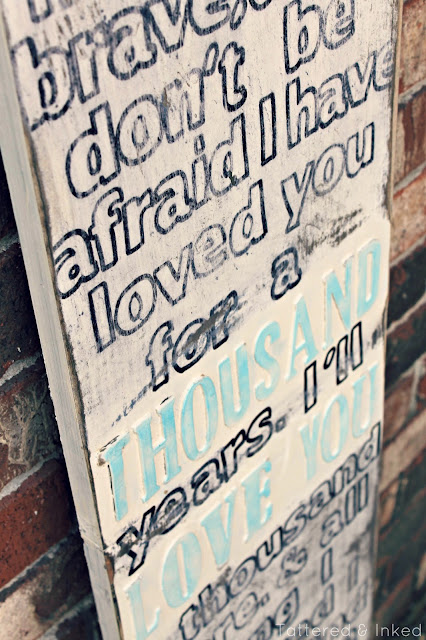 brave,
don't be
afraid I have
loved you
for a
THOUSAND
years. I'll
LOVE YOU
thousand
& all
I
Tattered & Inked